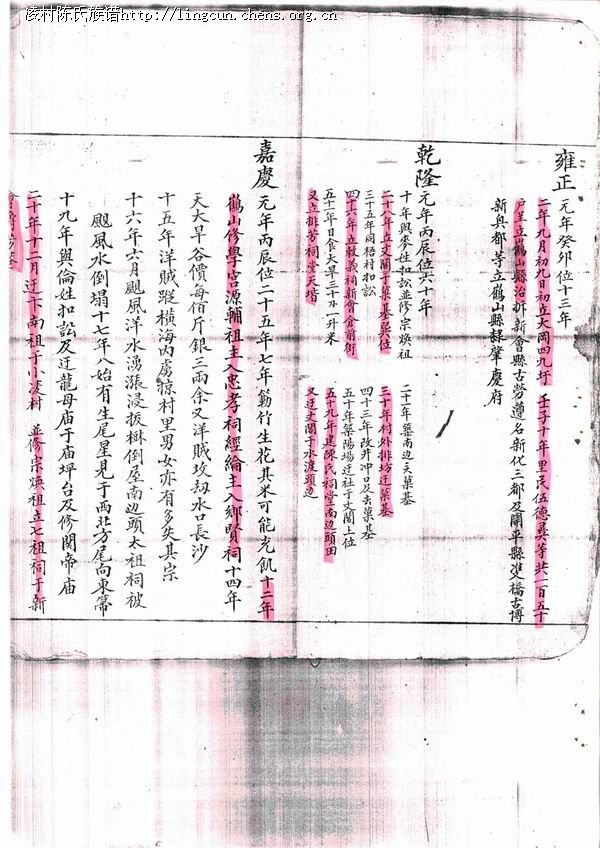 凌村陈氏族谱http://lingcun.chens.org.cn
雍正 元年癸卯位十三年
二年九月初九日初立大岡四九圩 壬子十年里民伍德彞等共一百五十
户呈立鶴山縣治拆新會縣古劳遵名新化三都及開平縣雙橋古博
新興都等立鶴山縣隸肇慶府
乾隆 元年丙辰位六十年
十年與麥姓扣訟並修宗焕祖
二十八年立文閣于菓基吳位
三十五年同梧村扣訟
四十六年立敦義祠新會倉前街
五十一年日食大旱三十不一升米
又立排芳祠堂天堦
二十一年築南边天菓基
三十年村外排坊迁菓基
四十三年改井冲口及去菓基
五十年築陽塲迁社于文閣上位
五十九年建陳氏祠堂南边頭田
又迁文閣于水渡頭边
嘉慶 元年丙辰位二十五年七年簕竹生花其米可能充飢十二年
鶴山修學宮源輔祖主入忠孝祠經綸主入鄉賢祠十四年
天大旱谷價每佰斤銀三兩余又洋賊坆刼水口長沙
十五年洋賊蹤横海内虜掠村里男女亦有多失其宗
十六年六月颶風洋水湧漲浸扳樹倒屋南边頭太祖祠被
颶風水倒塌十七年八始有生尾星見于西北方尾向東箒
十九年與倫姓扣訟及迁龍母庙于庙坪台及修関帝庙
二十年十二月迁卞南祖于小凌村 並修宗焕祖立七祖祠于新